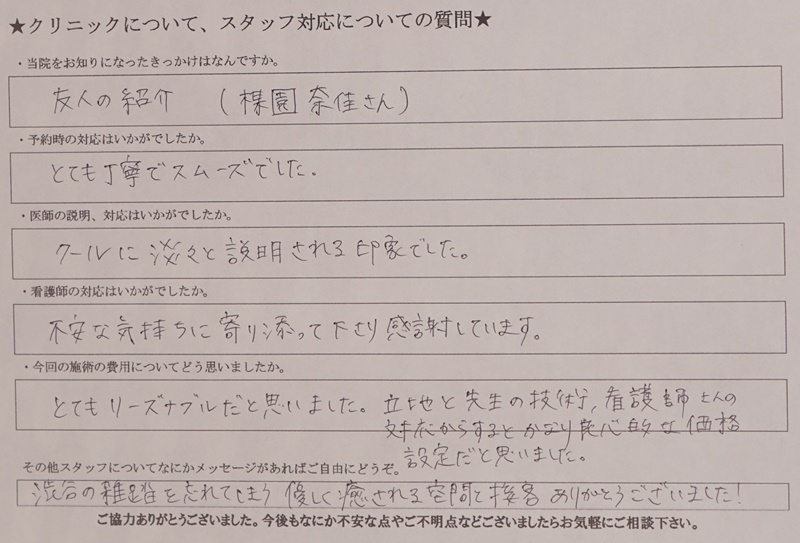 ★クリニックについて、スタッフ対応についての質問★
・当院をお知りになったきっかけはなんですか。
友人の紹介 (楳園 奈佳さん)
・予約時の対応はいかがでしたか。
とても丁寧でスムーズでした。
・医師の説明、対応はいかがでしたか。
クールに淡々と説明される印象でした。
・看護師の対応はいかがでしたか。
不安な気持ちに寄り添って下さり感謝しています。
・今回の施術の費用についてどう思いましたか。
とてもリーズナブルだと思いました。立地と先生の技術,看護師さんの
対応からするとかなり良心的な価格
設定だと思いました。
その他スタッフについてなにかメッセージがあればご自由にどうぞ。
渋谷の雑踏を忘れてしまう 優しく癒される空間と接客 ありがとうございました!
ご協力ありがとうございました。今後もなにか不安な点やご不明点などございましたらお気軽にご相談下さい。